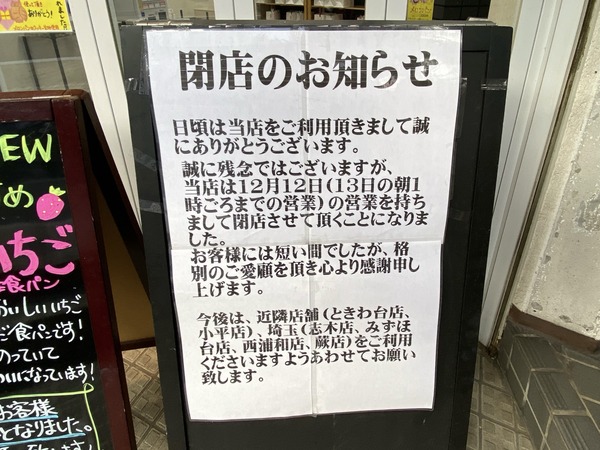 閉店のお知らせ
日頃は当店をご利用頂きまして誠
にありがとうございます。
誠に残念ではございますが、
当店は12月12日(13日の朝1
時ごろまでの営業)の営業を持ち
まして閉店させて頂くことになりま
した。
お客様には短い間でしたが、格
別のご愛顧を頂き心より感謝申し
上げます。
今後は、近隣店舗(ときわ台店、
小平店)、埼玉(志木店、みずほ
台店、西浦和店、蕨店)をご利用
くださいますようあわせてお願い
致します。
NEW
いちご
食パン
おいしいいちご
食パンです!
のっていて
になっています!
お客様
となりました。
ありがとう!